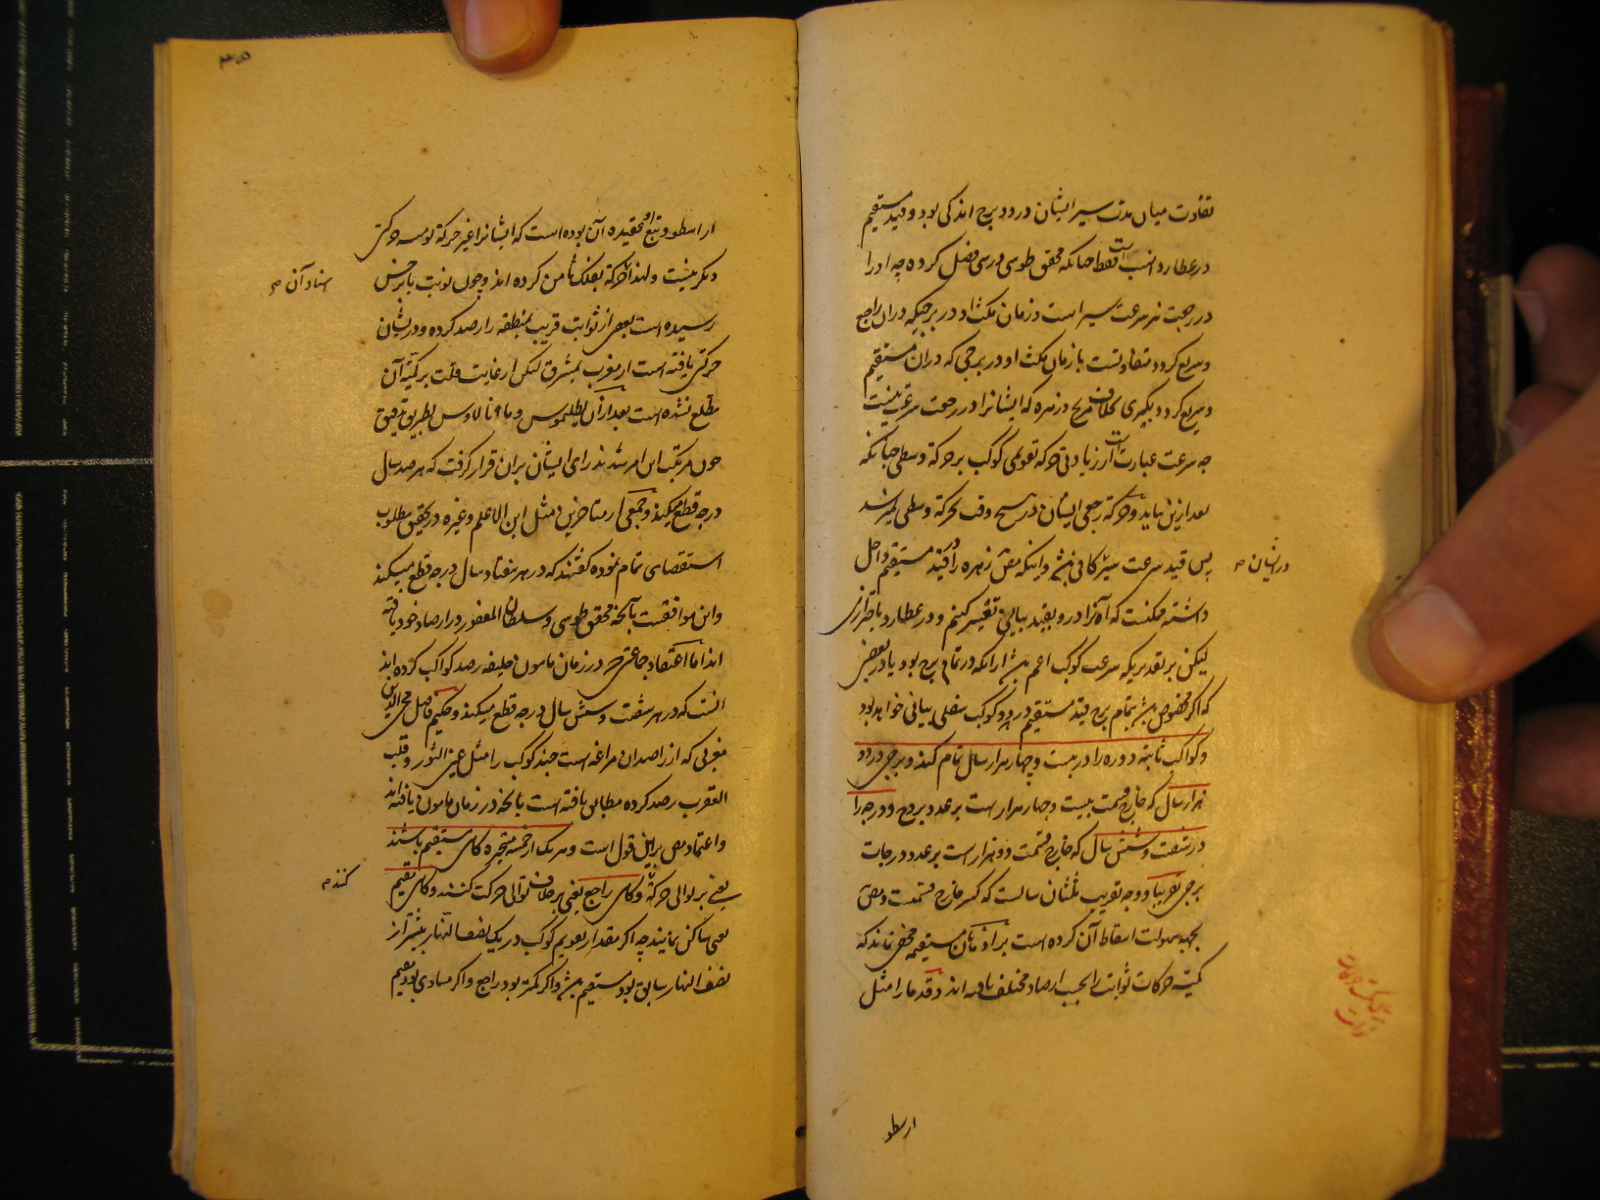 تفاوت میان مدت سیر ایشان در دو برج اندکی بود و قید مستقیم
در عطارد انسب است فقط چنانکه محقق طوسی در سی فصل کرده چه او را
در رجعت نیز سرعت سیر است و زمان مکث او در برجی که در آن راجع
و سریع گردد متفاوتست با زمان مکث او در برجی که در آن مستقیم
و سریع گردد بخلاف مریخ و زهره که ایشانرا در رجعت سرعت نیست
چه سرعت عبارت است از زیادتی حرکة تقویمی کوکب بر حرکة وسطی چنانکه
بعد ازین بیاید و حرکة رجعی ایشان در هیچ وقت بحرکة وسطی نمیرسد
پس قید سرعت سیر کافی باشد و اینکه مص زهره را در قید مستقیم داخل
داشته ممکنست که آنرا درو بقید بیانی تفسیر کنیم و در عطارد باحترازی
لیکن بر تقدیریکه سرعت کوکب اعم باشد از آنکه در تمام برج بود یا در بعض
که اگر مخصوص باشد بتمام برج قید مستقیم در هر دو کوکب سفلی بیانی خواهد بود
وکواکب ثابته دوره را در بیست و چهار هزار سال تمام کنند و برجی در دو
هزار سال که خارج قسمت بیست و چهار هزار است بر عدد بروج و درجه را
در شصت و شش سال که خارج قسمت دو هزار است بر عدد درجات
برجی تقریبا و وجه تقریب ثلثان سالست که کسر خارج قسمت و مص
بجهة سهولت اسقاط آن کرده است
کمیت حرکات ثوابت را بحسب ارصاد مختلف یافته اند و قدما را مثل
در ایشان
ارسطو
ارسطو و تبع او عقیده آن بوده است که ایشانرا غیر حرکة یومیه حرکتی
دیگر نیست و لهذا حرکة بفلک ثامن کرده اند و چون نوبت بابرخس
رسیده است بعضی از ثوابت قریب بمنطقه را رصد کرده و در ایشان
حرکتی یافته است از مغرب بمشرق لیکن از غایت قلت بر کمیة آن
مطلع نشده است بعد از آن بطلیموس و مانالاوس بطریق تدقیق
چون مرتکب این امر شدند رای ایشان بران قرار گرفت که هر صد سال
درجه قطع میکنند و جمعی از متاخرین مثل ابن الاعلم و غیره در تحقیق مطلوب
استقصای تمام نموده گفتند که در هر هفتاد سال درجه قطع میکنند
واین موافقست بآنچه محقق طوسی و سلطان المغفور در ارصاد خود یافته
اند اما اعتقاد جماعتی که در زمان مامون خلیفه رصد کواکب کرده اند
آنست که در هر شصت و شش سال درجه قطع میکنند و حکیم فاضل محی الدین
مغربی که از راصدان مراغه است چند کوکب را مثل عین الثور و قلب
العقرب رصد کرده مطابق یافته است بآنچه در زمان مامون یافته اند
واعتماد مص برین قول است و هر یک از خمسه متحیره گاهی مستقیم باشند
یعنی بر توالی حرکة و گاهی راجع یعنی بر خلاف توالی حرکت کنند و گاهی مقیم
یعنی ساکن نمایند چه اگر مقدار تقویم کوکب در یک نصف النهار بیشتر از
نصف النهار سابق بود مستقیم باشد و اگر کمتر بود راجع و اگر مساوی بود مقیم
اسناد آن
کنند